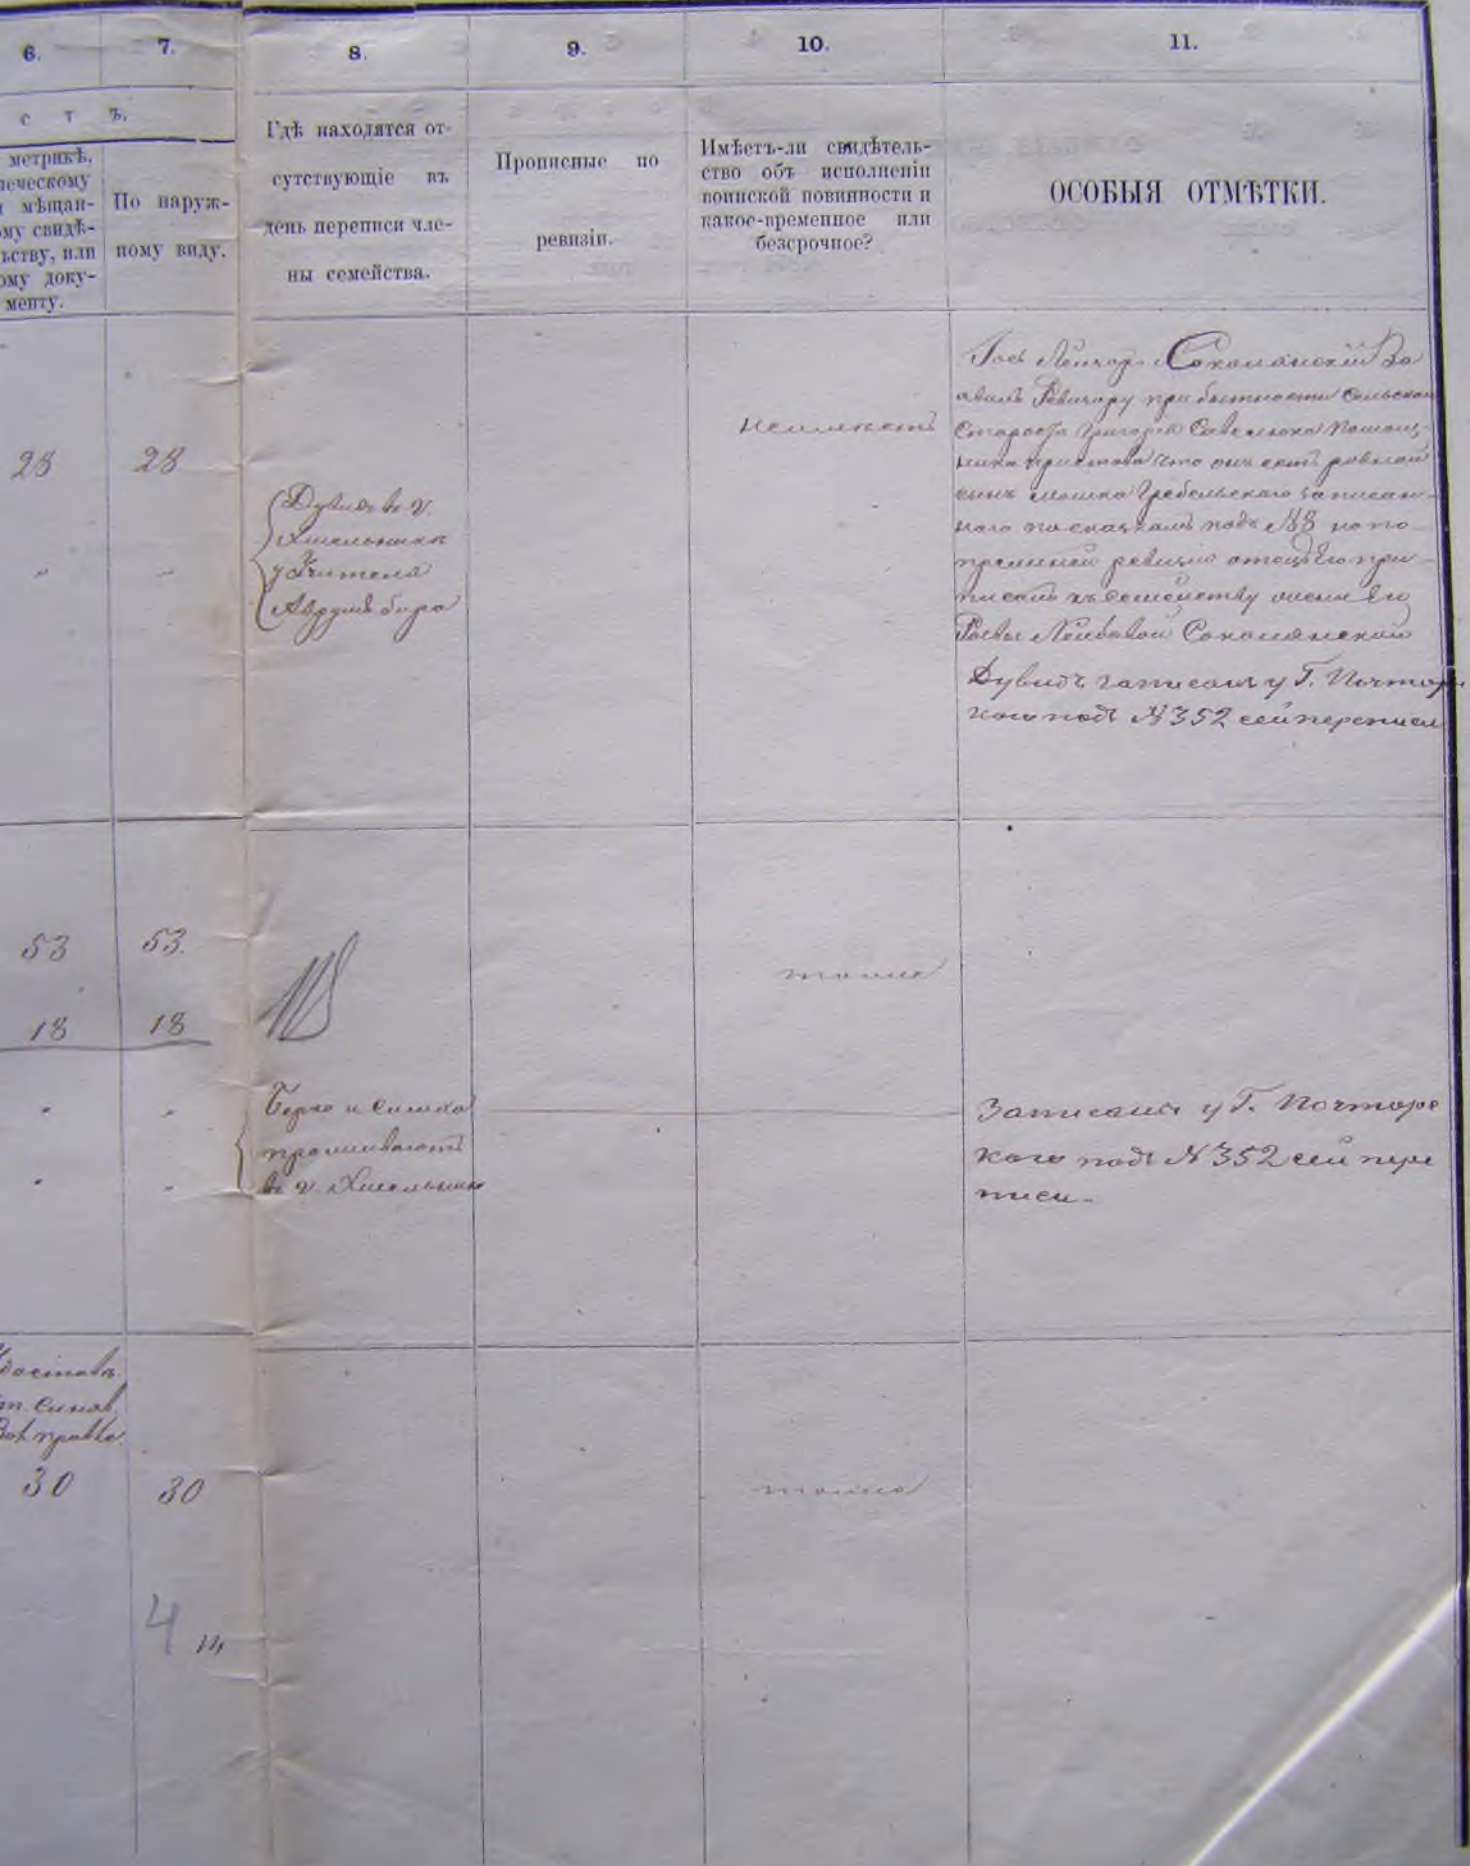 6.
7.
8.
9.
10.
11.
с т ъ.
метрикѣ,
ческому
мѣщан-
ому свидѣ-
ьству, или
ому доку-
менту.
По наруж-
ному виду.
Гдѣ находятся от-
сутствующіе въ
день переписи чле-
ны семейства.
Прописные по
ревизіи.
Имѣетъ-ли свидѣтель-
ство объ исполненіи
воинской повинности и
какое-временное или
безсрочное?
ОСОБЫЯ ОТМѢТКИ.
28
28
Дувидъ въ г.
Хмельникѣ
у Учителя
Аврумъ
неимѣетъ
Соколянскій За
явилъ Ревизору при бытности Сельскаго
Старосты Григорія
пристава что онъ есть родной
сынъ Мошка Гребельскаго записан-
наго по сказкамъ подъ №8 но по
прежней ревизіи отецъ Его при
писанъ къ семейству Его
Лейбовой Соколянской
Дувидъ записанъ у Г. Почтар
кого подъ №352 сей переписи
53
53.
тоже
18
18
Берко и Симха
проживаютъ
въ г. Хмельникѣ
Записаны у Г. Почтарс
кого подъ №352 сей пере
писи.
30
30
тоже
4